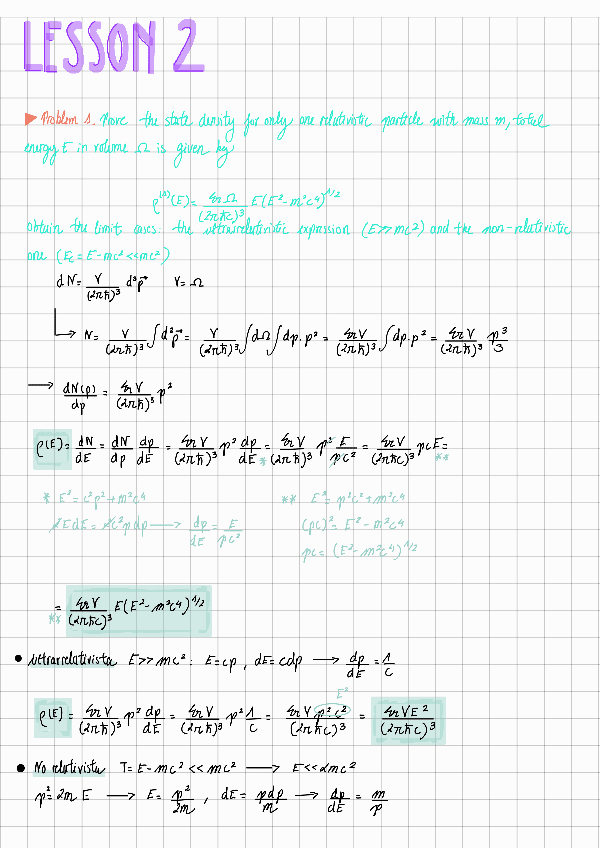 LESSON 2
▶ Problem 1. Prove the state density for only one relativistic particle with mass m, total
energy E in volume Ω is given by
ρ⁽¹⁾(E) = 4πΩ/(2πħc)³ E(E²-m²c⁴)^1/2
Obtain the limit cases: the ultrarrelativistic expression (E>>mc²) and the non-relativistic
one (Ec = E-mc² << mc²)
dN = V/(2πħ)³ d³p⃗ V = Ω
↳ N = V/(2πħ)³ ∫d³p⃗ = V/(2πħ)³ ∫dΩ ∫dp·p² = 4πV/(2πħ)³ ∫dp·p² = 4πV/(2πħ)³ p³/3
→ dN(p)/dp = 4πV/(2πħ)³ p²
ρ(E) = dN/dE = dN/dp dp/dE = 4πV/(2πħ)³ p² dp/dE =* 4πV/(2πħ)³ p² E/pc² = 4πV/(2πħc)³ pcE = **
* E² = c²p² + m²c⁴ ** E² = p²c² + m²c⁴
2EdE = 2c²pdp → dp/dE = E/pc² (pc)² = E² - m²c⁴
pc = (E² - m²c⁴)^1/2
=** 4πV/(2πħc)³ E(E²-m²c⁴)^1/2
• Ultrarrelativista E >> mc²: E = cp, dE = cdp → dp/dE = 1/c
E²
ρ(E) = 4πV/(2πħ)³ p² dp/dE = 4πV/(2πħ)³ p² 1/c = 4πV p²·c²/(2πħc)³ = 4πVE²/(2πħc)³
• No relativista T = E-mc² << mc² → E << 2mc²
p² = 2mE → E = p²/2m, dE = pdp/m → dp/dE = m/p